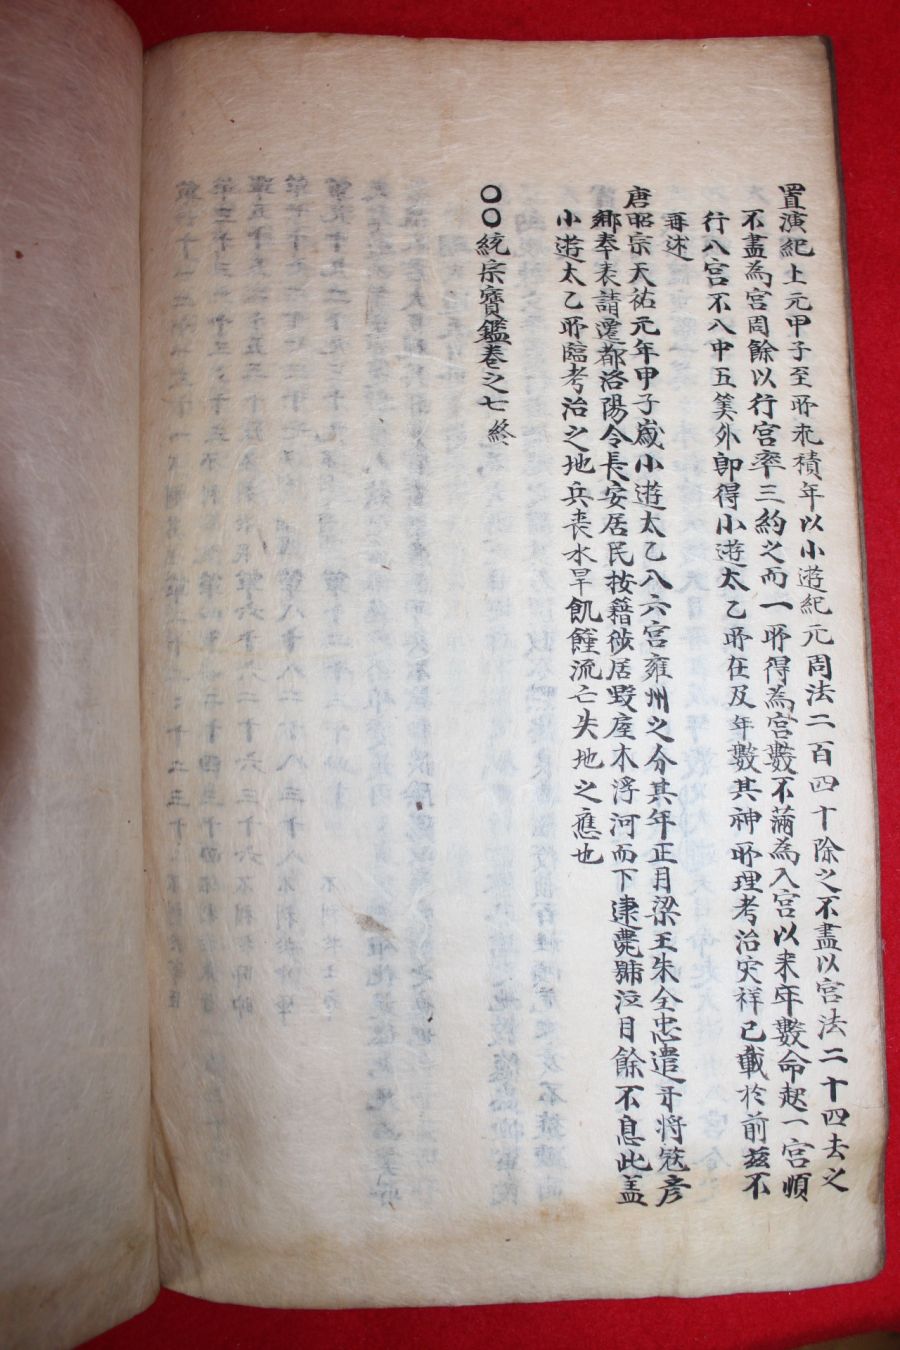 置演紀上元甲子至所求積年以小遊紀元周法二百四十除之不盡以宮法二十四去之
不盡為宮周餘以行宮率三約之而一所得為宮數不滿為入宮以来年數命起一宮順
行八宮不入中五筭外即得小遊太乙所在及年數其神所理考治灾祥已載於前兹不
再述
唐昭宗天祐元年甲子歳小遊太乙入六宮雍州之分其年正月梁王朱全忠遣牙将宼彦
鄉奉表請遷都洛陽令長安居民按籍徙居毀座木浮河而下連甍號泣月餘不息此盖
小遊太乙所臨考治之地兵喪水旱飢饉流亡失地之應也
〇〇統宗寶鑑巻之七終